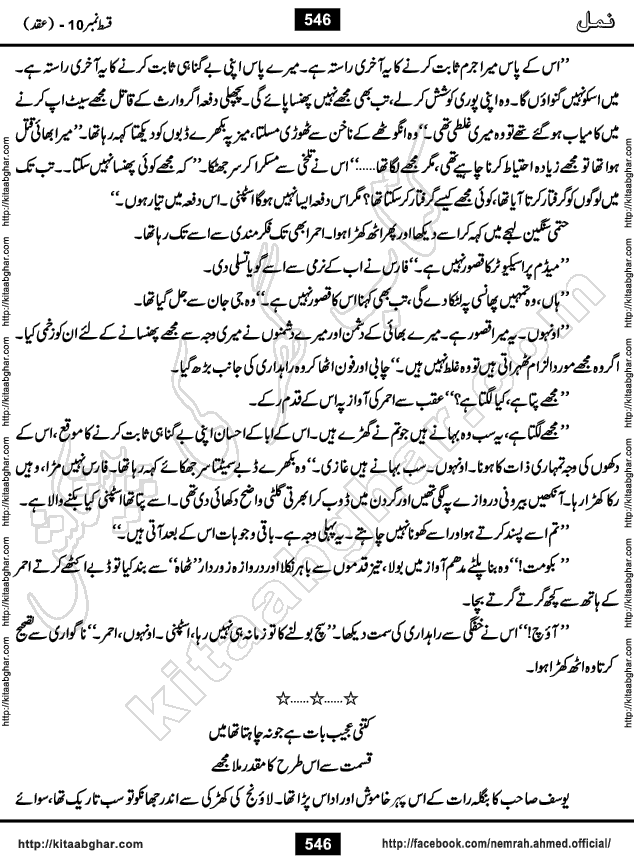 نمل
546
قسط نمبر 10 - (عقد)
’’اس کے پاس میرا جرم ثابت کرنے کا یہ آخری راستہ ہے۔ میرے پاس اپنی بے گناہی ثابت کرنے کا یہ آخری راستہ ہے۔
میں اسکو نہیں گنواؤں گا۔ وہ اپنی پوری کوشش کر لے، تب بھی مجھے نہیں پھنسا پائے گی۔ پچھلی دفعہ اگر وارث کے قاتل مجھے سیٹ اپ کرنے
میں کامیاب ہو گئے تھے تو وہ میری غلطی تھی۔‘‘ وہ انگوٹھے کے ناخن سے ٹھوڑی مسلتا، میز پہ بکھرے ڈبوں کو دیکھتا کہہ رہا تھا۔ ’’میرا بھائی قتل
ہوا تھا تو مجھے زیادہ احتیاط کرنا چاہیے تھی، مگر مجھے لگا تھا......‘‘ اس نے تلخی سے مسکرا کر سر جھٹکا۔ ’’کہ مجھے کوئی پھنسا نہیں سکتا۔۔ تب تک
میں لوگوں کو گرفتار کرتا آیا تھا، کوئی مجھے کیسے گرفتار کر سکتا تھا؟ مگر اس دفعہ ایسا نہیں ہوگا اسٹپنی۔ اس دفعہ میں تیار ہوں۔‘‘
حتمی سنگین لہجے میں کہہ کر اسے دیکھا اور پھر اٹھ کھڑا ہوا۔ احمر ابھی تک فکر مندی سے اسے تک رہا تھا۔
’’میڈم پراسیکیوٹر کا قصور نہیں ہے۔‘‘ فارس نے اب کے نرمی سے اسے گویا تسلی دی۔
’’ہاں، وہ تمہیں پھانسی پر لٹکا دے گی، تب بھی کہنا اس کا قصور نہیں ہے۔‘‘ وہ جی جان سے جل گیا تھا۔
’’اونہوں۔ یہ میرا قصور ہے۔ میرے بھائی کے دشمن اور میرے دشمنوں نے میری وجہ سے مجھے پھنسانے کے لئے ان کو زخمی کیا۔
اگر وہ مجھے مورد الزام ٹھہراتی ہیں تو وہ غلط نہیں ہیں۔‘‘ چابی اور فون اٹھا کر وہ راہداری کی جانب بڑھ گیا۔
’’مجھے پتا ہے، کیا لگتا ہے؟‘‘ عقب سے احمر کی آواز پہ اس کے قدم رکے۔
’’مجھے لگتا ہے، یہ سب وہ بہانے ہیں جو تم نے گھڑے ہیں۔ اس کے ابا کے احسان اپنی بے گناہی ثابت کرنے کا موقع، اس کے
دکھوں کی وجہ تمہاری ذات کا ہونا۔ اونہوں۔ سب بہانے ہیں غازی۔‘‘ وہ بکھرے ڈبے سمیٹتا سر جھکائے کہہ رہا تھا۔ فارس نہیں مڑا، وہیں
رکا کھڑا رہا۔ آنکھیں بیرونی دروازے پہ لگی تھیں اور گردن میں ڈوب کر ابھرتی گلٹی واضح دکھائی دی تھی۔ اسے پتا تھا اسٹپنی کیا بکنے والا ہے۔
’’تم اسے پسند کرتے ہو اور اسے کھونا نہیں چاہتے۔ یہ پہلی وجہ ہے۔ باقی وجوہات اس کے بعد آتی ہیں۔‘‘
’’بکومت!‘‘ وہ بنا پلٹے مدھم آواز میں بولا، تیز قدموں سے باہر نکلا اور دروازہ زوردار ’’ٹھاہ‘‘ سے بند کیا تو ڈبے اکٹھے کرتے احمر
کے ہاتھ سے کچھ گرتے گرتے بچا۔
’’آؤچ!‘‘ اس نے خفگی سے راہداری کی سمت دیکھا۔ ’’سچ بولنے کا تو زمانہ ہی نہیں رہا، اسٹپنی۔ اونہوں، احمر۔‘‘ ناگواری سے تصحیح
کرتا وہ اٹھ کھڑا ہوا۔
☆......☆......☆
کتنی عجیب بات ہے جو نہ چاہتا تھا میں
قسمت سے اس طرح کا مقدر ملا مجھے
یوسف صاحب کا بنگلہ رات کے اس پہر خاموش اور اداس پڑا تھا۔ لاؤنج کی کھڑکی سے اندر جھانکو تو سب تاریک تھا، سوائے
http://kitaabghar.com
546
http://facebook.com/nemrah.ahmed.official/
http://kitaabghar.com http://kitaabghar.com http://kitaabghar.com http://kitaabghar.com http://kitaabghar.com http://kitaabghar.com
http://kitaabghar.com http://kitaabghar.com http://kitaabghar.com http://kitaabghar.com http://kitaabghar.com http://kitaabghar.com
کتاب گھر کی پیشکش
kitaabghar.com